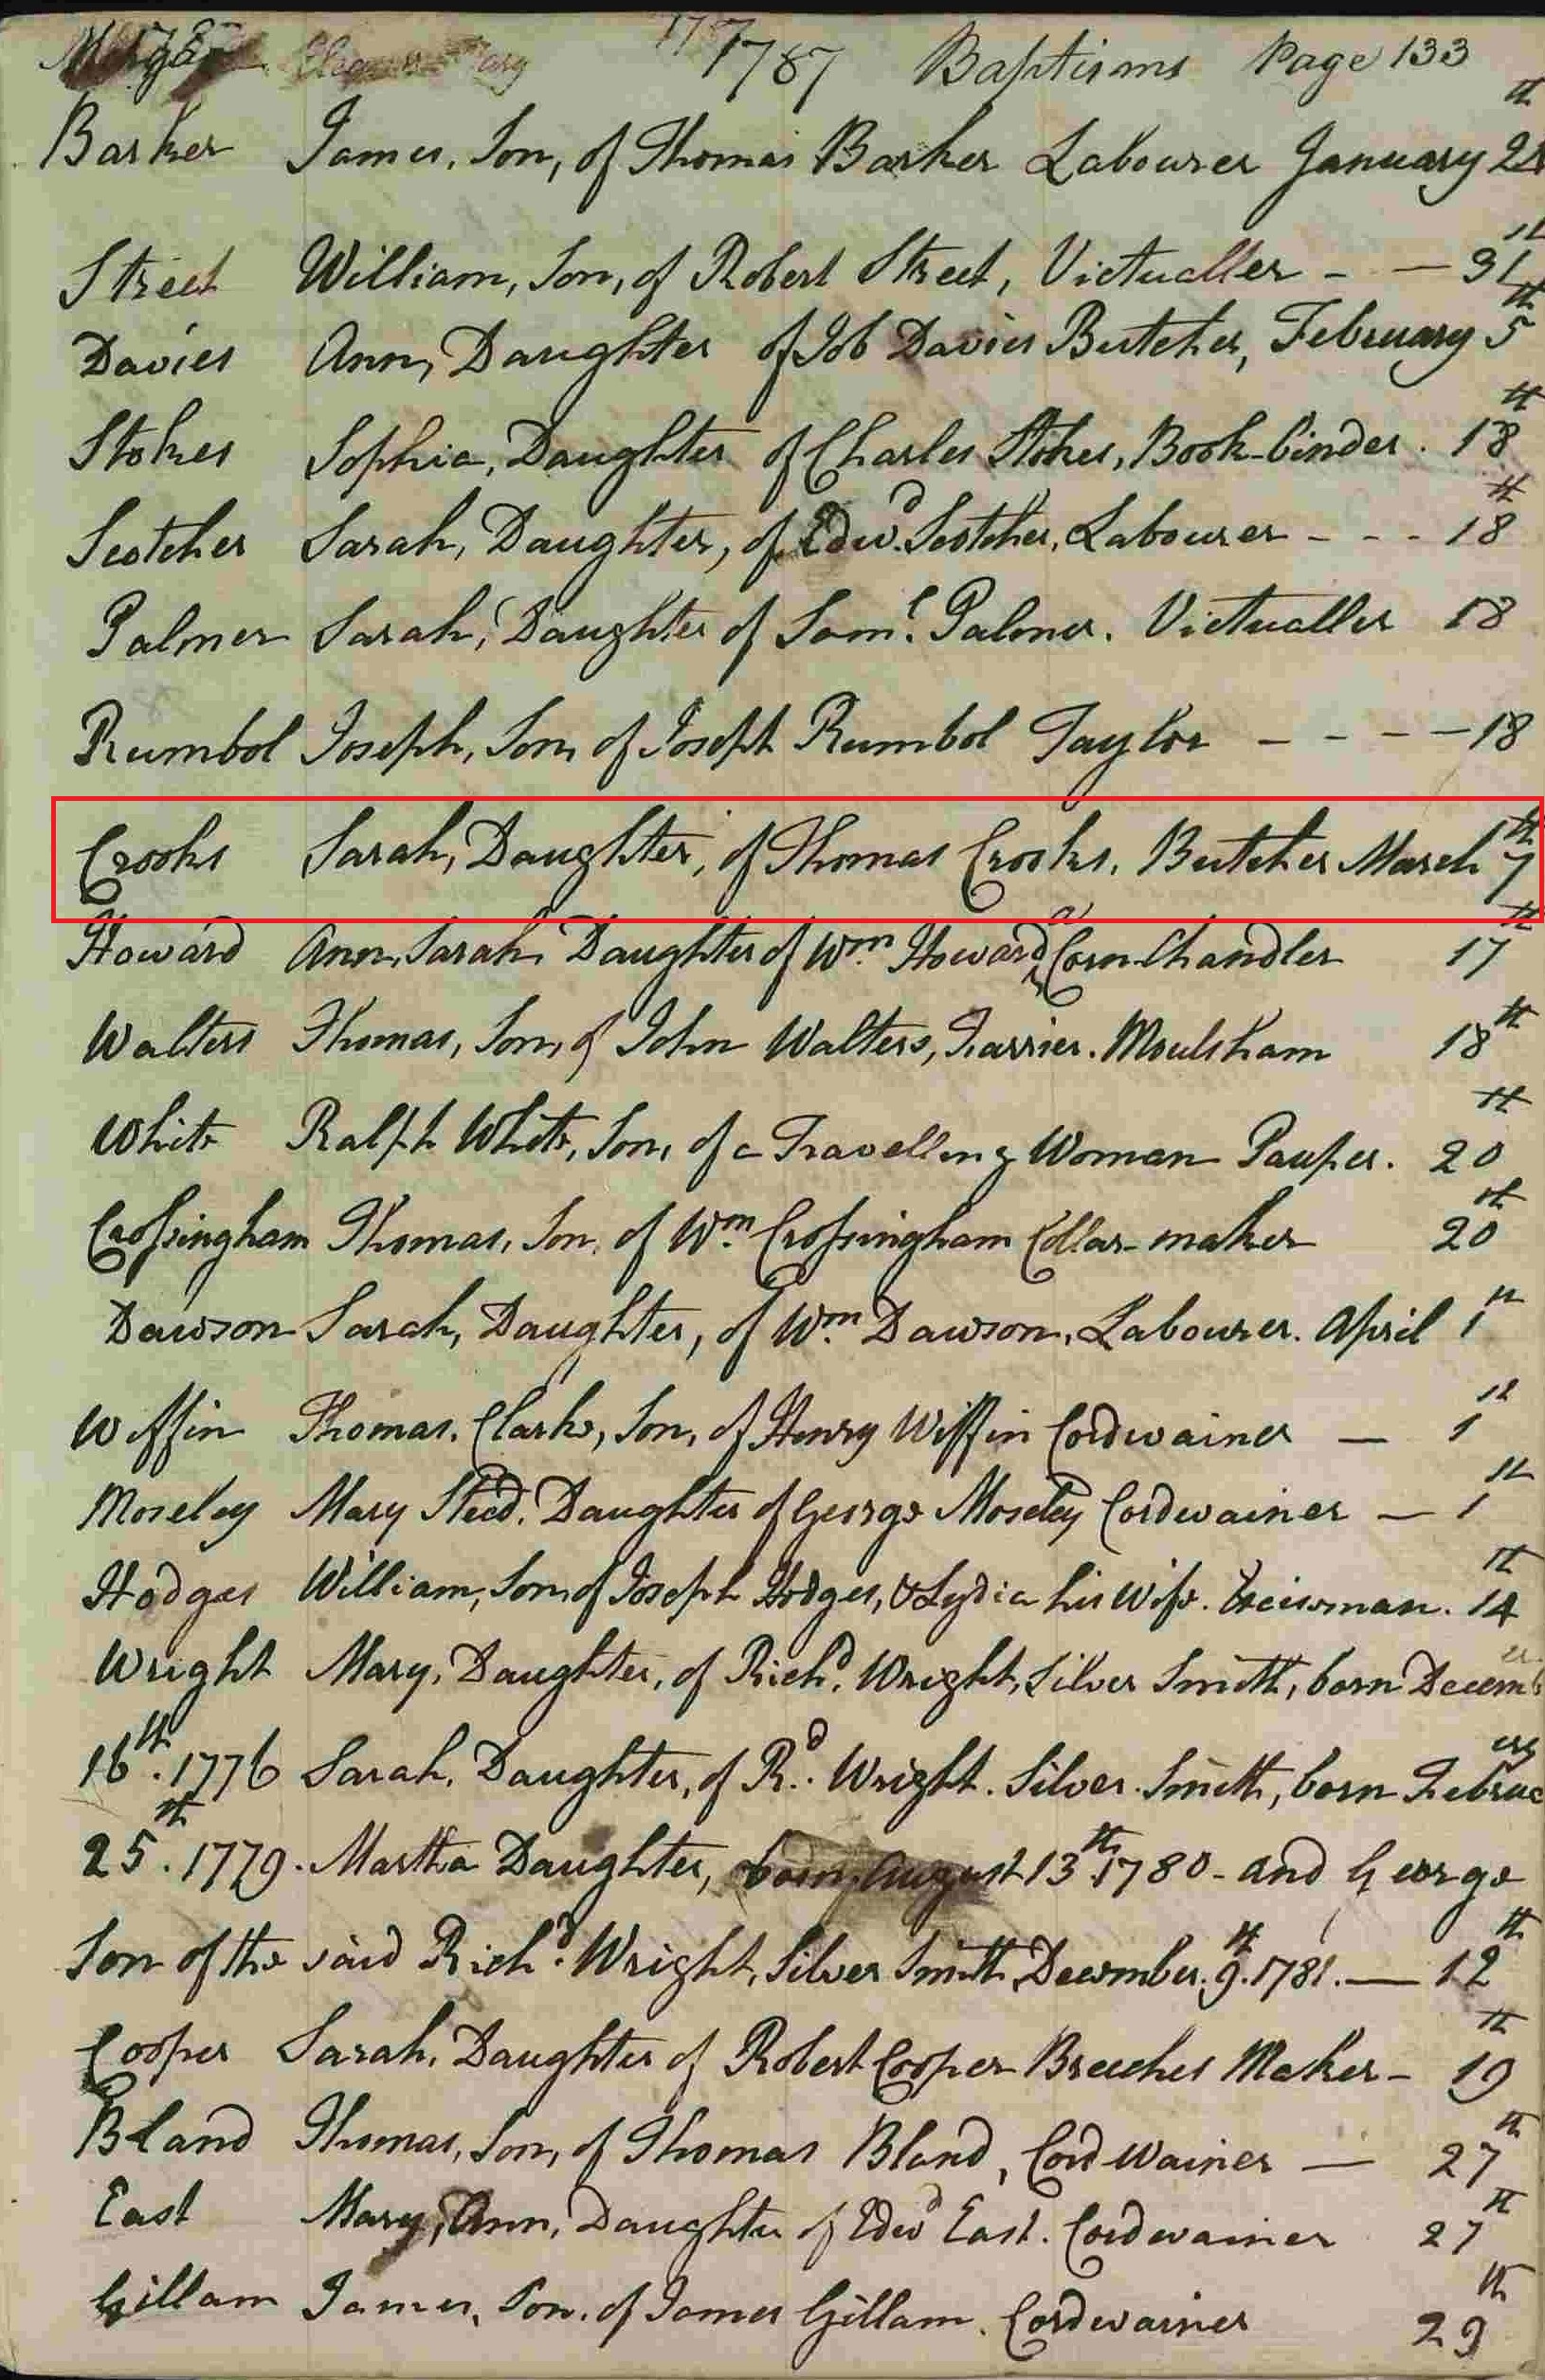 1787 Baptisms Page 133
Barker James, Son, of Thomas Barker Labourer January 28th
Street William, Son, of Robert Street, Victualler - - 31st
Davies Ann, Daughter of Job Davies Butcher, February 5th
Stokes Sophia, Daughter of Charles Stokes, Book-binder. 18th
Scotcher Sarah, Daughter, of Edwd. Scotcher, Labourer - - - 18th
Palmer Sarah, Daughter of Saml. Palmer. Victualler 18
Rumbol Joseph, Son, of Joseph Rumbol Taylor - - - - 18
Crooks Sarah, Daughter, of Thomas Crooks, Butcher March 7th
Howard Ann, Sarah, Daughter of Wm. Howard, a Corn Chandler 17th
Walters Thomas, Son, of John Walters, Farrier. Moulsham 18th
White Ralph White, Son, of a Travelling Woman Pauper. 20th
Crossingham Thomas, Son, of Wm. Crossingham Collar-maker 20th
Dawson Sarah, Daughter, of Wm. Dawson, Labourer. April 1st
Wiffin Thomas, Clarke, Son, of Henry Wiffin Cordwainer - 1st
Moseley Mary Steed, Daughter of George Moseley Cordwainer - 1st
Hodges William, Son of Joseph Hodges, & Lydia his Wife. Exciseman. 14th
Wright Mary, Daughter, of Richd. Wright, Silver Smith, born December
16th. 1776 Sarah, Daughter, of Rd. Wright. Silver Smith, born February
25th. 1779. Martha Daughter, born, August 13th 1780 - and George
Son of the said Richd. Wright, Silver Smith December. 9th. 1781. - 12th
Cooper Sarah, Daughter of Robert Cooper Breeches Maker - 19th
Bland Thomas, Son, of Thomas Bland, Cord Wainer - 27th
East Mary, Ann, Daughter of Edwd East. Cordwainer 27th
Gillam James, Son, of James Gillam. Cordwainer 29th